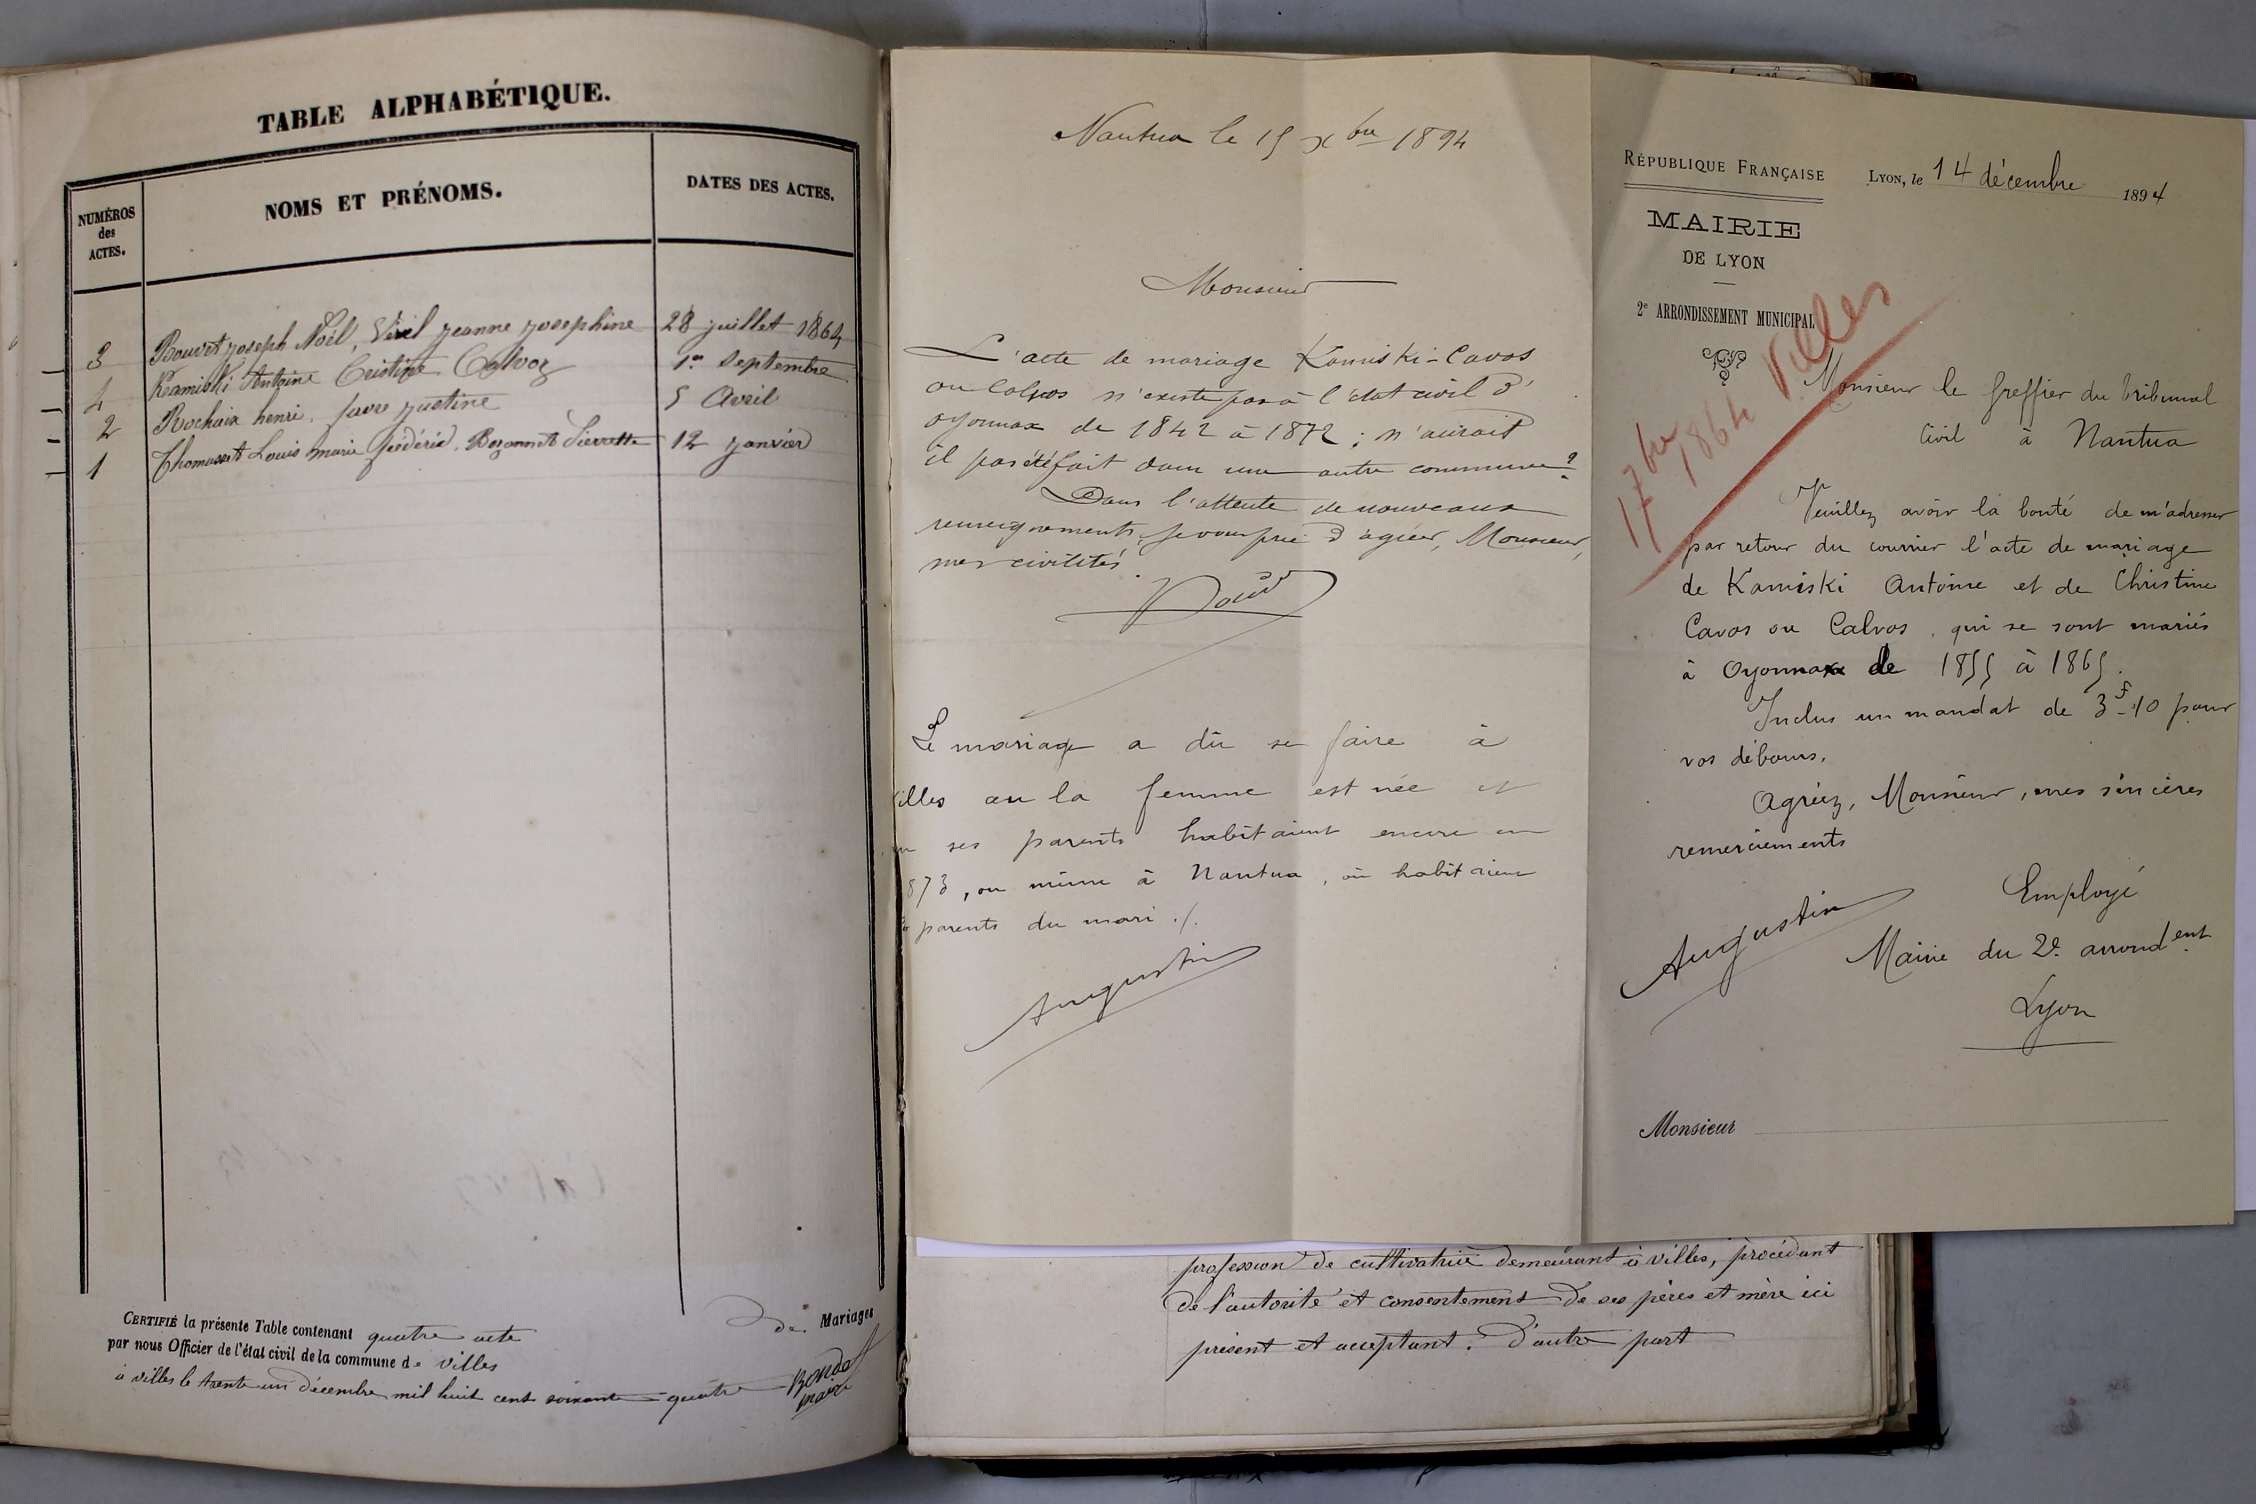 TABLE ALPHABÉTIQUE.
NUMÉROS
des
ACTES.
NOMS ET PRÉNOMS.
DATES DES ACTES.
3 Bouvet joseph Noël, Viel jeanne josephine 28 juillet 1864
4 Kamiski Antoine Cristine Calvoz 1er Septembre
2 Rochaix henri. favre justine 5 Avril
1 Thomasset Louis marie frédéric. Bozonnet Pierrette 12 janvier
CERTIFIÉ la présente Table contenant quatre acte des Mariages
par nous Officier de l'état civil de la commune de villes
à villes le trente un décembre mil huit cent soixante quatre
Bondet
maire
Nantua le 15 Xbre 1894
Monsieur
L'acte de mariage Kamiski-Cavos
ou Calvos n'existe pas à l'état civil d'
oyonnax de 1842 à 1872 ; n'aurait
il pas été fait dans une autre commune ?
Dans l'attente de nouveaux
renseignements, je vous prie d'agréer, Monsieur,
mes civilités.
Le mariage a dû se faire à
illes ou la femme est née et
ses parents habitaient encore en
873, ou même à Nantua, où habitaient
parents du mari ./.
Augustin
RÉPUBLIQUE FRANÇAISE
LYON, le 14 décembre 1894
MAIRIE
DE LYON
2e ARRONDISSEMENT MUNICIPAL
1 7bre 1864 Villes
Monsieur le Greffier du Tribunal
Civil à Nantua
Veuillez avoir la bonté de m'adresser
par retour du courrier l'acte de mariage
de Kamiski Antoine et de Christine
Cavos ou Calvos, qui se sont mariés
à Oyonnax de 1855 à 1865.
Inclus un mandat de 3f10 pour
vos débours.
Agréez, Monsieur, mes sincères
remerciements
Augustin
Employé
Mairie du 2e arrondent
Lyon
Monsieur
profession de cultivatrice demeurant à villes, procédant
de l'autorité et consentement de ses pères et mère ici
présent et acceptant. D'autre part